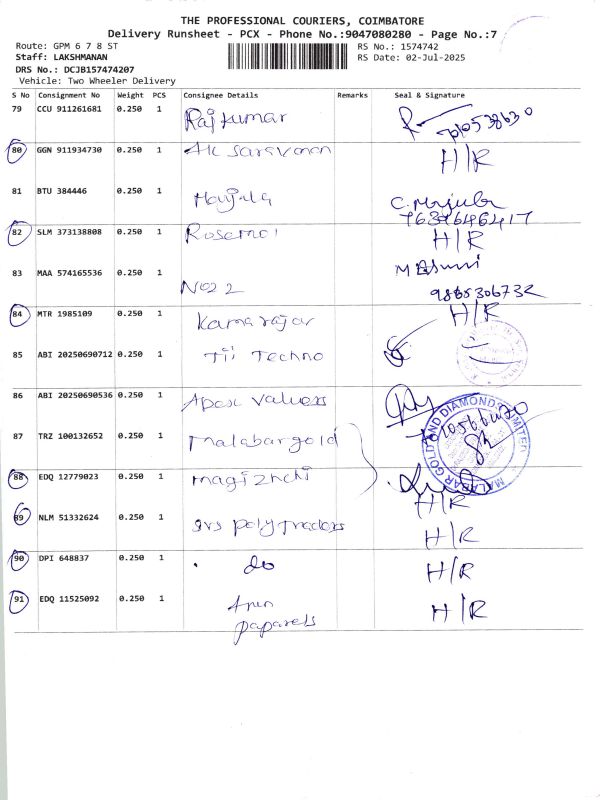 THE PROFESSIONAL COURIERS, COIMBATORE
Delivery Runsheet - PCX - Phone No.:9047080280 - Page No.:7
Route: GPM 6 7 8 ST
RS No.: 1574742
Staff: LAKSHMANAN
RS Date: 02-Jul-2025
DRS No.: DCJB157474207
Vehicle: Two Wheeler Delivery
S No Consignment No Weight PCS Consignee Details Remarks Seal & Signature
79 CCU 911261681 0.250 1 Rajkumar
80 GGN 911934730 0.250 1 AK Saravanan H/R
81 BTU 384446 0.250 1 Manjula C. Manjula
7639646417
82 SLM 373138808 0.250 1 H/R
83 MAA 574165536 0.250 1 NO 2 2
9885306732
84 MTR 1985109 0.250 1 Kamarajar H/R
85 ABI 20250690712 0.250 1 Tii Techno
86 ABI 20250690536 0.250 1 Apex Valuers
87 TRZ 100132652 0.250 1 Malabar gold
MALABAR GOLD AND DIAMONDS LIMITED
88 EDQ 12779023 0.250 1 magizhchi H/R
89 NLM 51332624 0.250 1 srs poly Traders H/R
90 DPI 648837 0.250 1 do H/R
91 EDQ 11525092 0.250 1 H/R